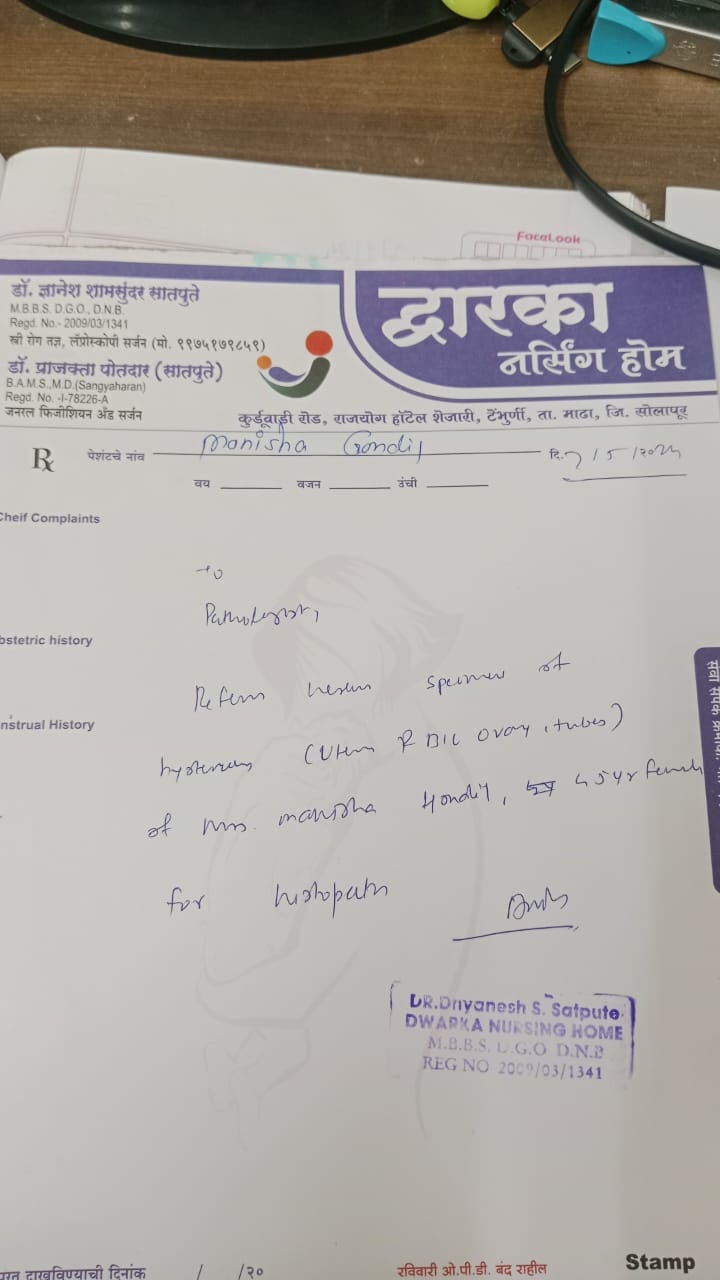 FaceLook
डॉ. ज्ञानेश शामसुंदर सातपुते
M.B.B.S. D.G.O., D.N.B.
Regd. No.- 2009/03/1341
स्त्री रोग तज्ञ, लॅप्रोस्कोपी सर्जन (मो. ९९७५१७९८५९)
डॉ. प्राजक्ता पोतदार (सातपुते)
B.A.M.S.,M.D.(Sangyaharan)
Regd. No. -I-78226-A
जनरल फिजीशियन अँड सर्जन
द्वारका
नर्सिंग होम
कुर्डूवाडी रोड, राजयोग हॉटेल शेजारी, टेंभुर्णी, ता. माढा, जि. सोलापूर
Rx पेशंटचे नांव Manisha दि. 7/5/२०२५
वय वजन उंची
Cheif Complaints
To
Pathologist,
bstetric history
Refer herein specimen of
nstrual History
(Uterus & B/L ovary, tubes)
of Mrs. Manisha 45 yr female
for histopath
DR.Dnyanesh S. Satpute
DWARKA NURSING HOME
M.B.B.S. D.G.O D.N.B
REG NO 2009/03/1341
दाखविण्याची दिनांक / /२०
रविवारी ओ.पी.डी. बंद राहील
Stamp